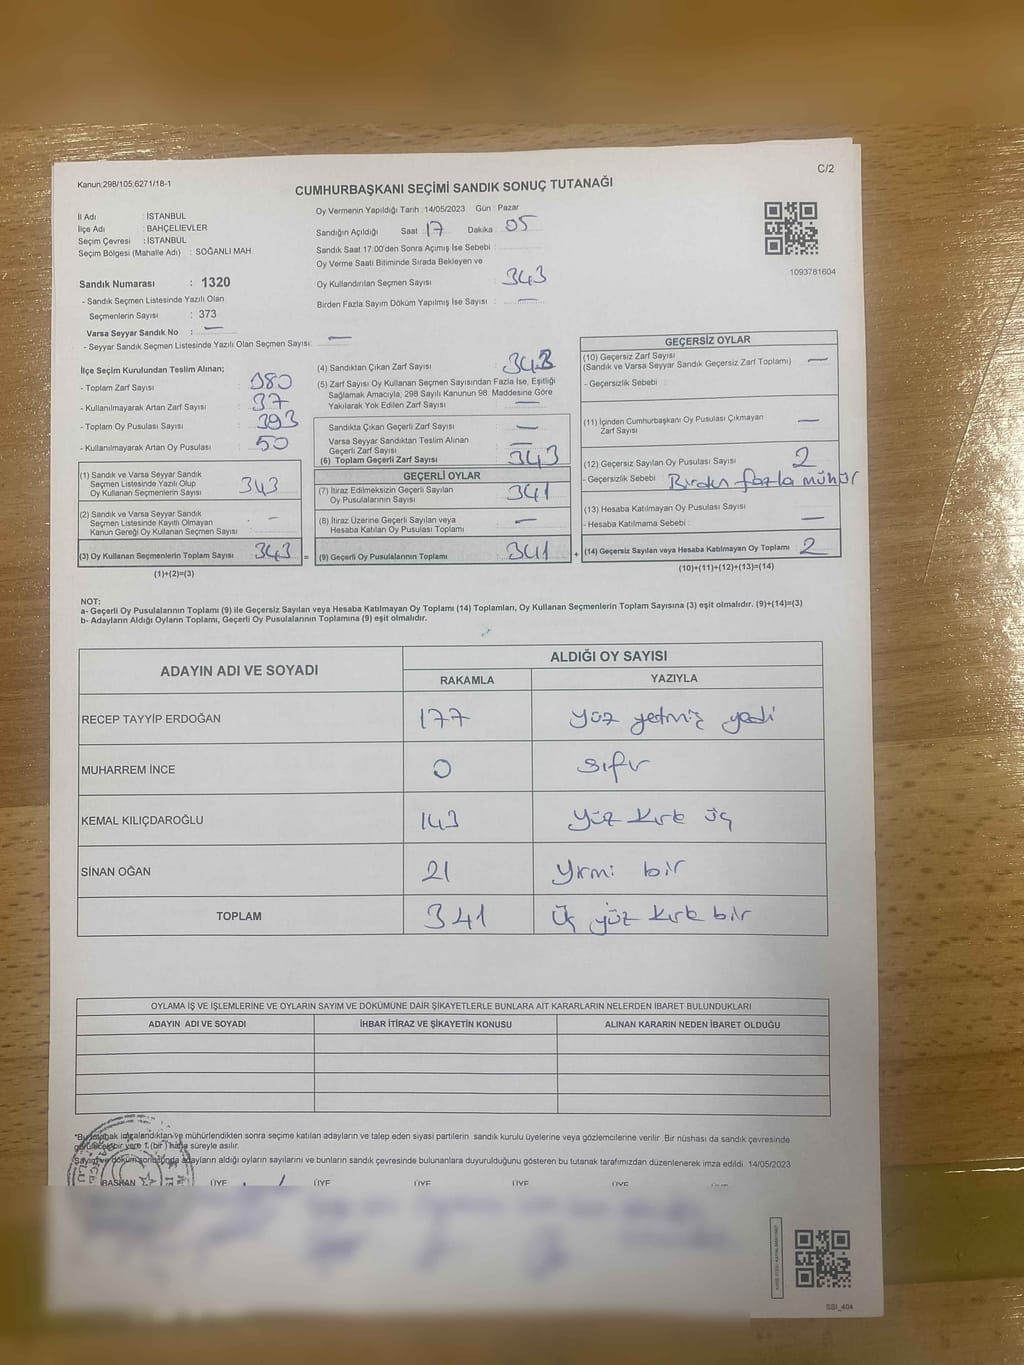 C/2
Kanun;298/105,6271/18-1
CUMHURBAŞKANI SEÇİMİ SANDIK SONUÇ TUTANAĞI
İl Adı : İSTANBUL
İlçe Adı : BAHÇELİEVLER
Seçim Çevresi : İSTANBUL
Seçim Bölgesi (Mahalle Adı) : SOĞANLI MAH.
Sandık Numarası : 1320
- Sandık Seçmen Listesinde Yazılı Olan
Seçmenlerin Sayısı : 373
Varsa Seyyar Sandık No : —
- Seyyar Sandık Seçmen Listesinde Yazılı Olan Seçmen Sayısı: —
Oy Vermenin Yapıldığı Tarih : 14/05/2023 Gün : Pazar
Sandığın Açıldığı Saat 17 Dakika 05
Sandık Saat 17:00'den Sonra Açımış İse Sebebi :
Oy Verme Saati Bitiminde Sırada Bekleyen ve
Oy Kullandırılan Seçmen Sayısı : 343
Birden Fazla Sayım Döküm Yapılmış İse Sayısı : —
1093781604
İlçe Seçim Kurulundan Teslim Alınan;
- Toplam Zarf Sayısı : 380
- Kullanılmayarak Artan Zarf Sayısı : 37
- Toplam Oy Pusulası Sayısı : 393
- Kullanılmayarak Artan Oy Pusulası : 50
(1) Sandık ve Varsa Seyyar Sandık
Seçmen Listesinde Yazılı Olup
Oy Kullanan Seçmenlerin Sayısı : 343
(2) Sandık ve Varsa Seyyar Sandık
Seçmen Listesinde Kayıtlı Olmayan
Kanun Gereği Oy Kullanan Seçmen Sayısı : —
(3) Oy Kullanan Seçmenlerin Toplam Sayısı : 343 =
(1)+(2)=(3)
(4) Sandıktan Çıkan Zarf Sayısı : 343
(5) Zarf Sayısı Oy Kullanan Seçmen Sayısından Fazla İse, Eşitliği
Sağlamak Amacıyla, 298 Sayılı Kanunun 98. Maddesine Göre
Yakılarak Yok Edilen Zarf Sayısı : —
Sandıkta Çıkan Geçerli Zarf Sayısı : —
Varsa Seyyar Sandıktan Teslim Alınan
Geçerli Zarf Sayısı : —
(6) Toplam Geçerli Zarf Sayısı : 343
GEÇERLİ OYLAR
(7) İtiraz Edilmeksizin Geçerli Sayılan
Oy Pusulalarının Sayısı : 341
(8) İtiraz Üzerine Geçerli Sayılan veya
Hesaba Katılan Oy Pusulası Toplamı : —
(9) Geçerli Oy Pusulalarının Toplamı : 341 +
GEÇERSİZ OYLAR
(10) Geçersiz Zarf Sayısı
(Sandık ve Varsa Seyyar Sandık Geçersiz Zarf Toplamı) : —
- Geçersizlik Sebebi :
(11) İçinden Cumhurbaşkanı Oy Pusulası Çıkmayan
Zarf Sayısı : —
(12) Geçersiz Sayılan Oy Pusulası Sayısı : 2
- Geçersizlik Sebebi : Birden fazla mühür
(13) Hesaba Katılmayan Oy Pusulası Sayısı : —
- Hesaba Katılmama Sebebi :
(14) Geçersiz Sayılan veya Hesaba Katılmayan Oy Toplamı : 2
(10)+(11)+(12)+(13)=(14)
NOT:
a- Geçerli Oy Pusulalarının Toplamı (9) ile Geçersiz Sayılan veya Hesaba Katılmayan Oy Toplamı (14) Toplamları, Oy Kullanan Seçmenlerin Toplam Sayısına (3) eşit olmalıdır. (9)+(14)=(3)
b- Adayların Aldığı Oyların Toplamı, Geçerli Oy Pusulalarının Toplamına (9) eşit olmalıdır.
ADAYIN ADI VE SOYADI ALDIĞI OY SAYISI
RAKAMLA YAZIYLA
RECEP TAYYİP ERDOĞAN 177 yüz yetmiş yedi
MUHARREM İNCE 0 sıfır
KEMAL KILIÇDAROĞLU 143 yüz kırk üç
SİNAN OĞAN 21 yirmi bir
TOPLAM 341 üç yüz kırk bir
OYLAMA İŞ VE İŞLEMLERİNE VE OYLARIN SAYIM VE DÖKÜMÜNE DAİR ŞİKAYETLERLE BUNLARA AİT KARARLARIN NELERDEN İBARET BULUNDUKLARI
ADAYIN ADI VE SOYADI İHBAR İTİRAZ VE ŞİKAYETİN KONUSU ALINAN KARARIN NEDEN İBARET OLDUĞU
*Bu tutanak imzalandıktan ve mühürlendikten sonra seçime katılan adayların ve talep eden siyasi partilerin sandık kurulu üyelerine veya gözlemcilerine verilir. Bir nüshası da sandık çevresinde
görülebilecek bir yere 1 (bir) hafta süreyle asılır.
Sayım ve döküm sonucunda adayların aldığı oyların sayılarını ve bunların sandık çevresinde bulunanlara duyurulduğunu gösteren bu tutanak tarafımızdan düzenlenerek imza edildi. 14/05/2023
BAŞKAN ÜYE ÜYE ÜYE ÜYE ÜYE
SSI_404